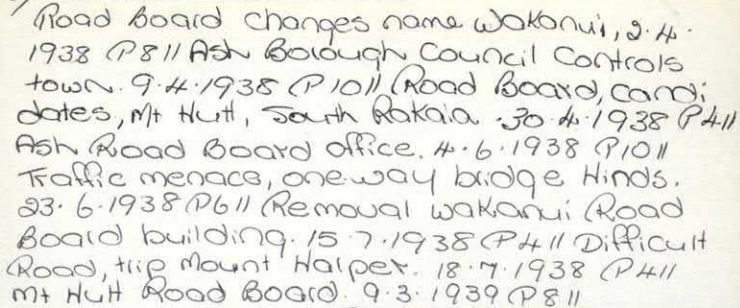 Road Board changes name Wakanui, 2.4.
1938 P8 // Ash Borough Council Controls
town. 9.4.1938 P10 // Road Board, candi
dates, Mt Hutt, South Rakaia. 30.4.1938 P4 //
Ash Road Board office. 4.6.1938 P10 //
Traffic menace, one way bridge Hinds.
23.6.1938 P6 // Removal Wakanui Road
Board building. 15.7.1938 P4 // Difficult
Road, trip Mount Harper. 18.7.1938 P4 //
Mt Hutt Road Board. 9.3.1939 P8 //